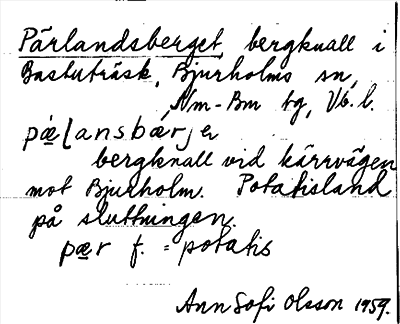 Pärlandsberget, bergknall i
Bastuträsk, Bjurholms sn,
Nm-Bm tg, Vb. l.
pæ̀ɭansbærjer
bergknall vid kärrvägen
mot Bjurholm. Potatisland
på sluttningen.
pær f. = potatis
Ann Sofi Olsson 1959.